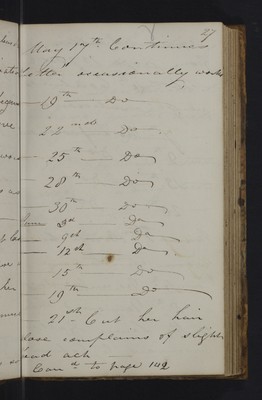 27
May 17th Continues
better occasionally works
19th Do
22nd Do
25th Do
28th Do
30th Do
June 3d Do
9th Do
12th Do
15th Do
19th Do
21st Cut her hair
close complains of slight
head ach
Cond to page 142